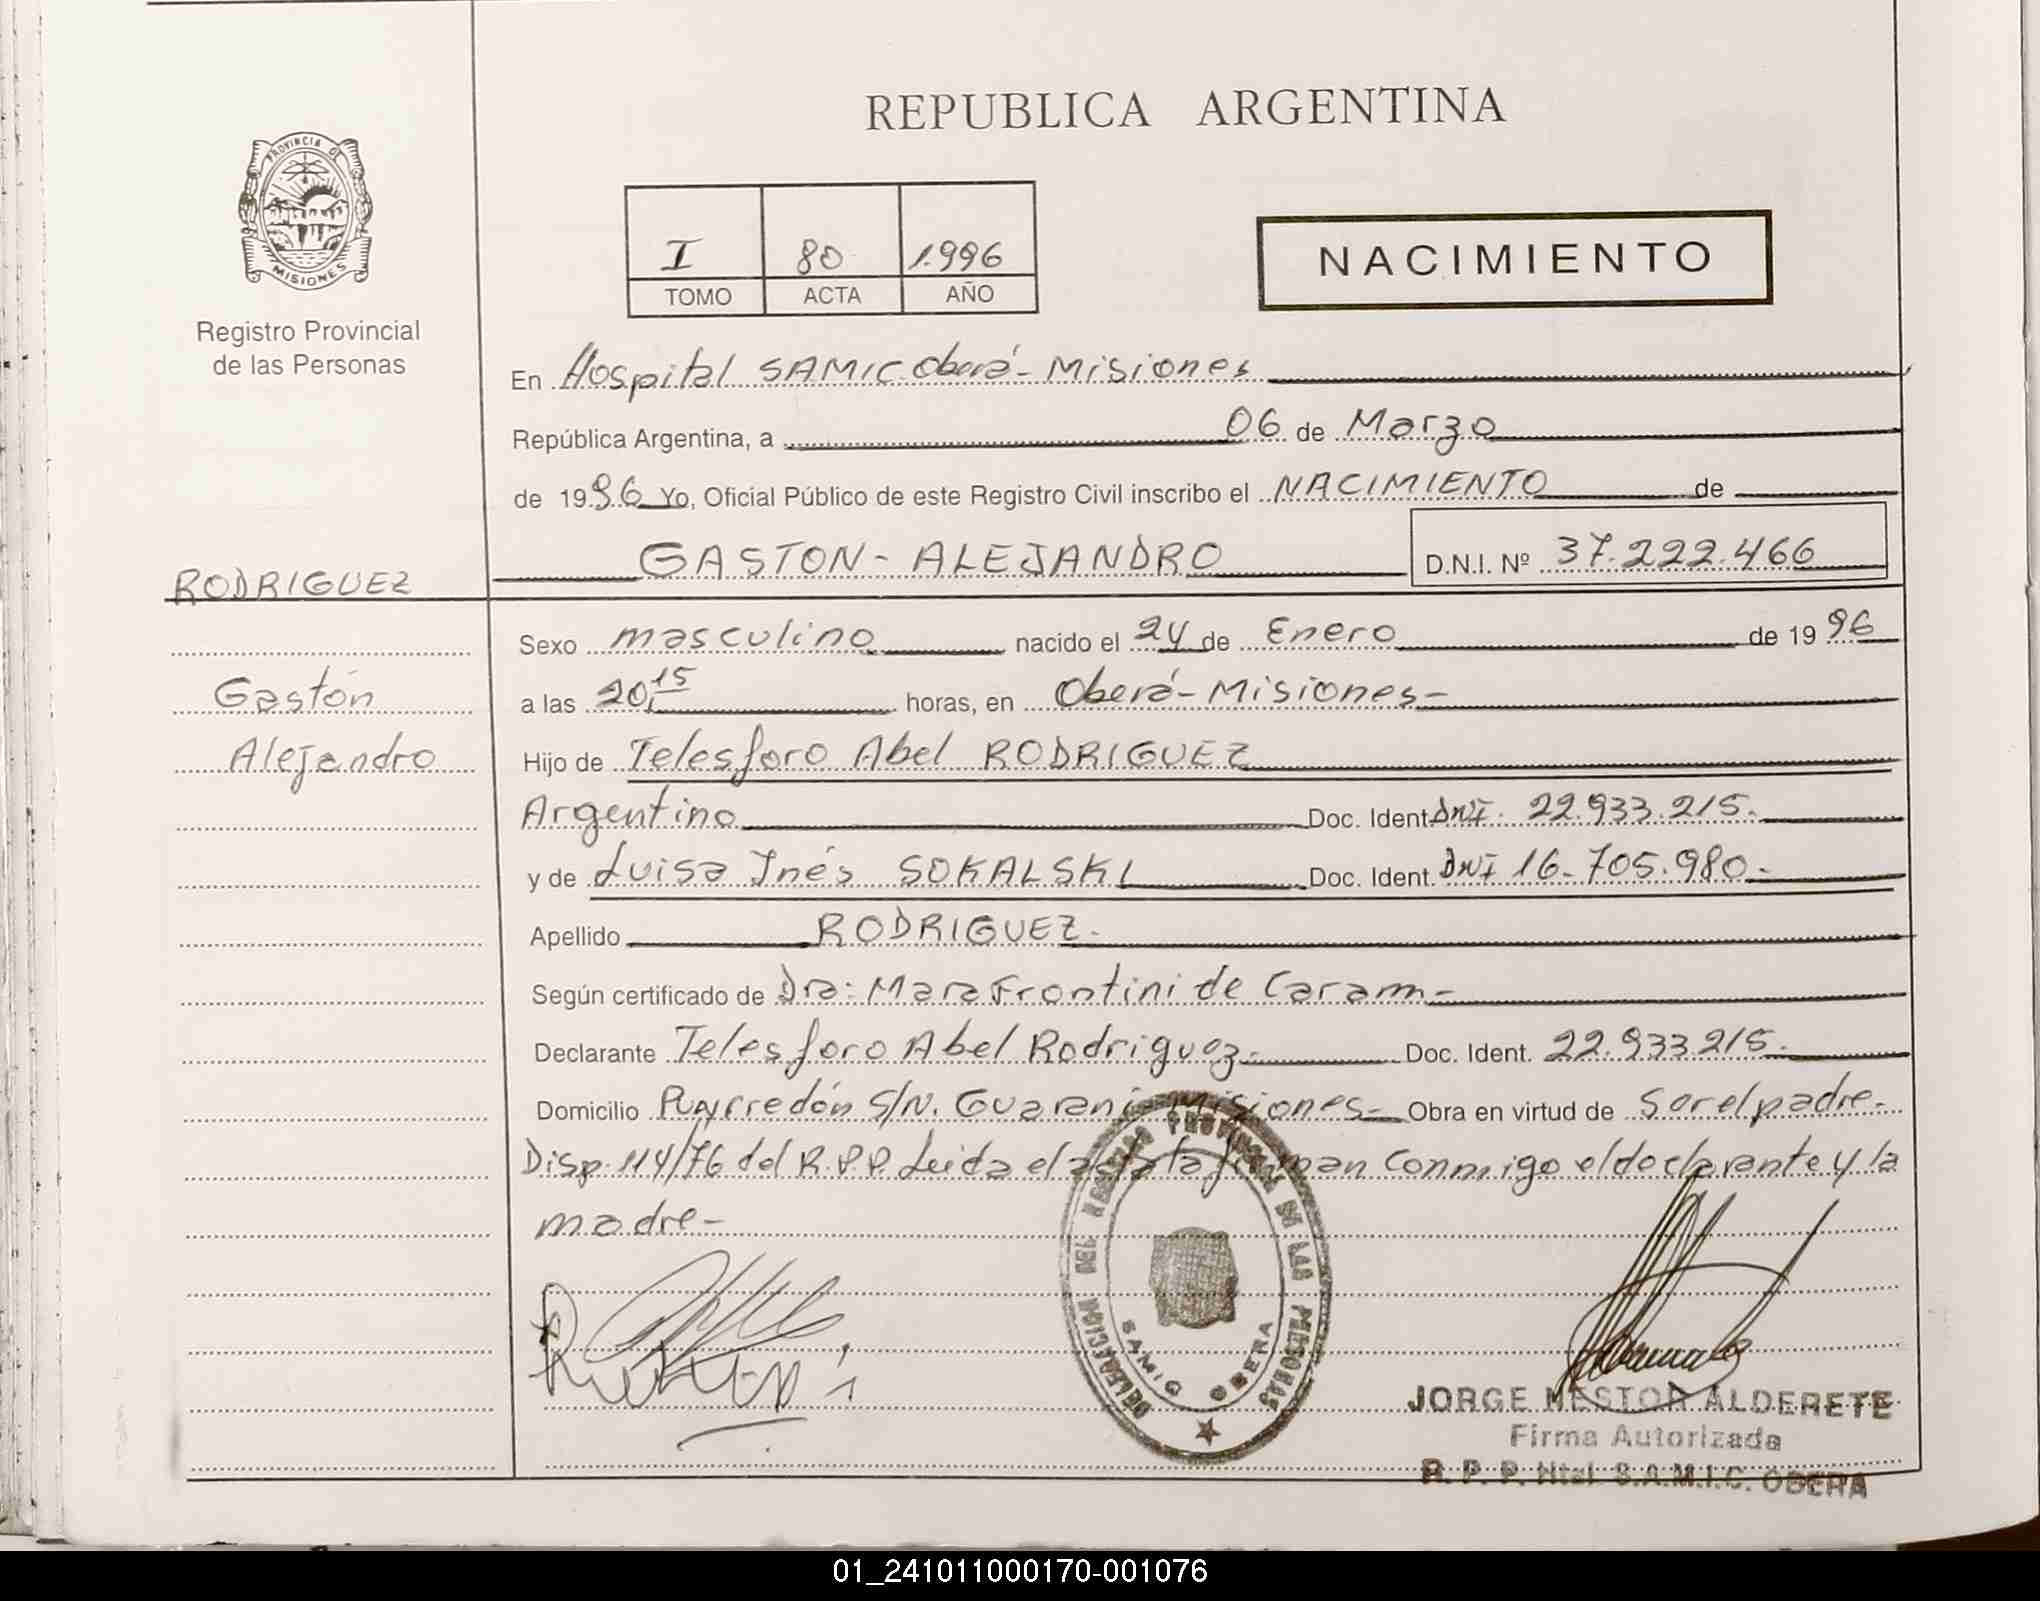 REPUBLICA ARGENTINA
PROVINCIA DE
MISIONES
Registro Provincial
de las Personas
I 80 1.996
TOMO ACTA AÑO
NACIMIENTO
En Hospital SAMIC Oberá - Misiones
República Argentina, a 06 de Marzo
de 1996 Yo, Oficial Público de este Registro Civil inscribo el NACIMIENTO de
GASTON - ALEJANDRO D.N.I. Nº 37.222.466
RODRIGUEZ
Gastón
Alejandro
Sexo masculino nacido el 24 de Enero de 1996
a las 20,15 horas, en Oberá - Misiones -
Hijo de Telesforo Abel RODRIGUEZ
Argentino Doc. Ident. DNI. 22.933.215.
y de Luisa Inés SOKALSKI Doc. Ident. DNI 16.705.980.-
Apellido RODRIGUEZ.
Según certificado de Dra: Mara Frontini de Caram -
Declarante Telesforo Abel Rodriguez - Doc. Ident. 22.933.215.
Domicilio Puyrredón S/N. Guaraní Misiones - Obra en virtud de Ser el padre -
Disp. 114/76 del R.P.P. Leída el acta la firman conmigo el declarante y la
madre -
DELEGACION DEL REGISTRO PROVINCIAL DE LAS PERSONAS
SAMIC OBERA
JORGE NESTOR ALDERETE
Firma Autorizada
R. P. P. Htal S.A.M.I.C. OBERA
01_241011000170-001076